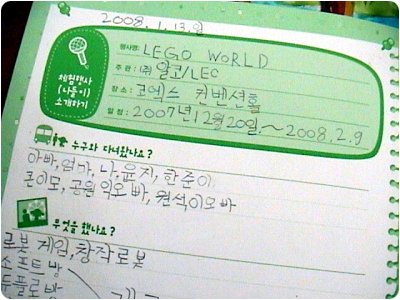 2008. 1. 13. 일
체험행사
(나들이)
소개하기
행사명 : LEGO WORLD
주관 : (주) 알코/LEC
장소 : 코엑스 컨벤션홀
일정 : 2007년 12월 20일. ~ 2008. 2. 9
누구와 다녀왔나요?
아빠, 엄마, 나, 윤지, 한준이
이모, 오빠, 원석이모빠
무엇을 했나요?
로봇 게임, 창작로봇
소프트 방
듀플로 방